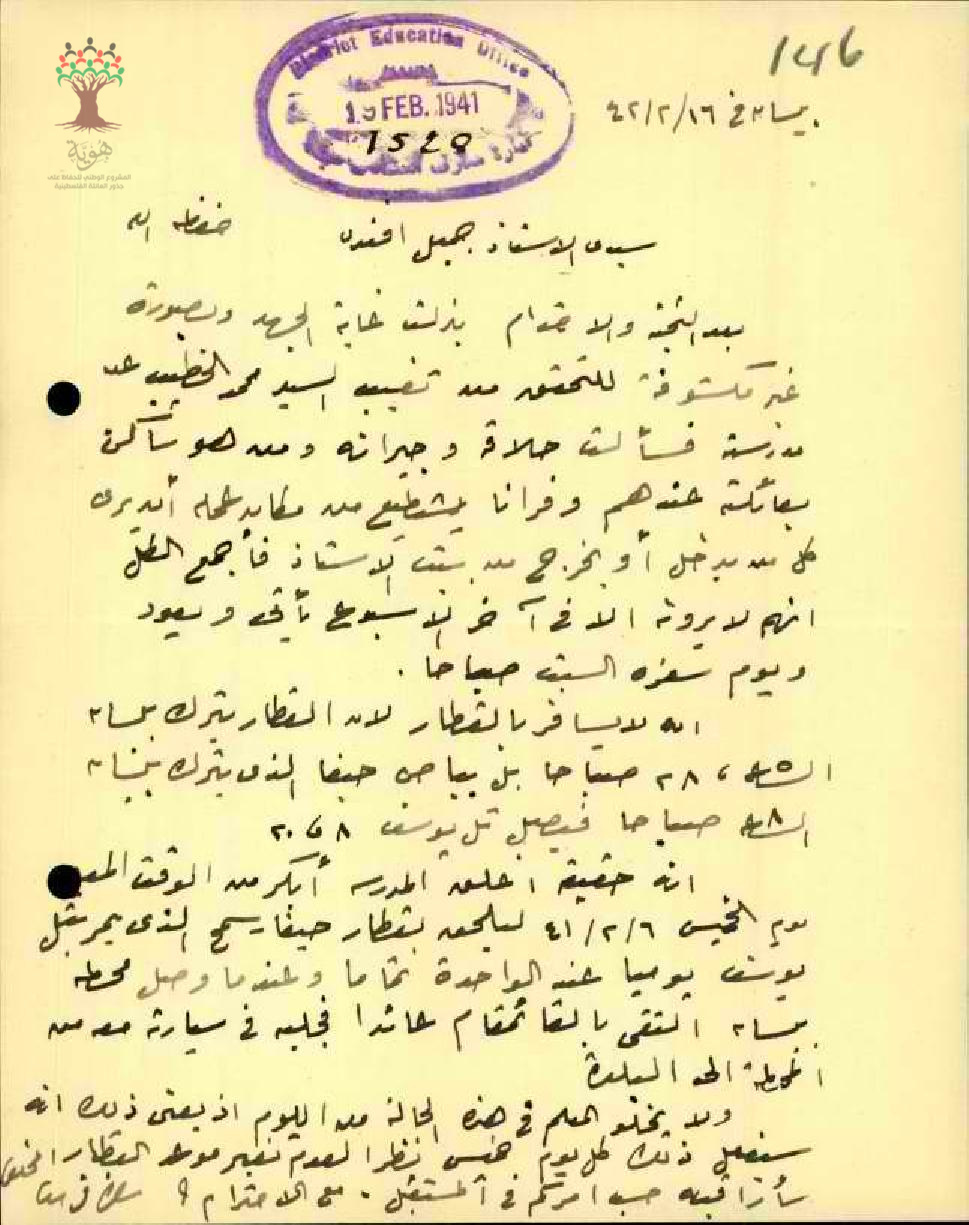 146
District Education Office
19 FEB. 1941
1520
بيسان في ٤٢/٢/١٦
هوية
المشروع الوطني للحفاظ على
جذور العائلة الفلسطينية
سيدي الاستاذ جميل افندي حفظه الله
بعد التحية والاحترام بذلت غاية الجهد وبصورة
غير مكشوفة للتحقق من تغيب السيد محمد الخطيب عن
مدرسته فسألت حلاقه وجيرانه ومن هو ساكن
بعائلته عندهم وفرانا يستطيع من مكان عمله أن يرى
كل من يدخل أو يخرج من بيت الاستاذ فأجمع الكل
انهم لا يرونه الا في آخر الاسبوع يأتي ويعود
ويوم سفره السبت صباحا .
انه لا يسافر بالقطار لان القطار يترك بيسان
الساعة صباحا بل بباص حيفا الذي يترك بيسان
الساعة ٨ صباحا فيصل تل يوسف ٨ و٢٠
انه حقيقة اغلق المدرسه أبكر من الوقت
يوم الخميس ٤١/٢/٦ ليلحق بقطار حيفا سمخ الذي يمر بتل
يوسف يوميا عند الواحدة تماما وعندما وصل محطة
بيسان التقى بالقائمقام عائدا فجلبه في سيارته معه من
المحطة الى البلدة
ولا يخلو المعلم في هذه الحالة من اللوم اذ يعني ذلك انه
سيفعل ذلك كل يوم خميس نظرا لعدم تغير موعد القطار
سأراقبه حسب امركم في المستقبل . مع الاحترام